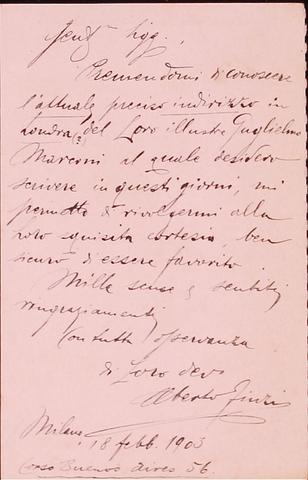 Gent. Sigg.,
Premendomi di conoscere
l'attuale preciso indirizzo in
Londra (?) del Loro illustre Guglielmo
Marconi al quale desidero
scrivere in questi giorni, mi
permetto di rivolgermi alla
loro squisita cortesia, ben
sicuro di essere favorito
Mille scuse e sentiti
ringraziamenti
Con tutta osservanza
di Loro dev
Alberto Finzi
Milano, 18 febb. 1903
Corso Buenos Aires 56.